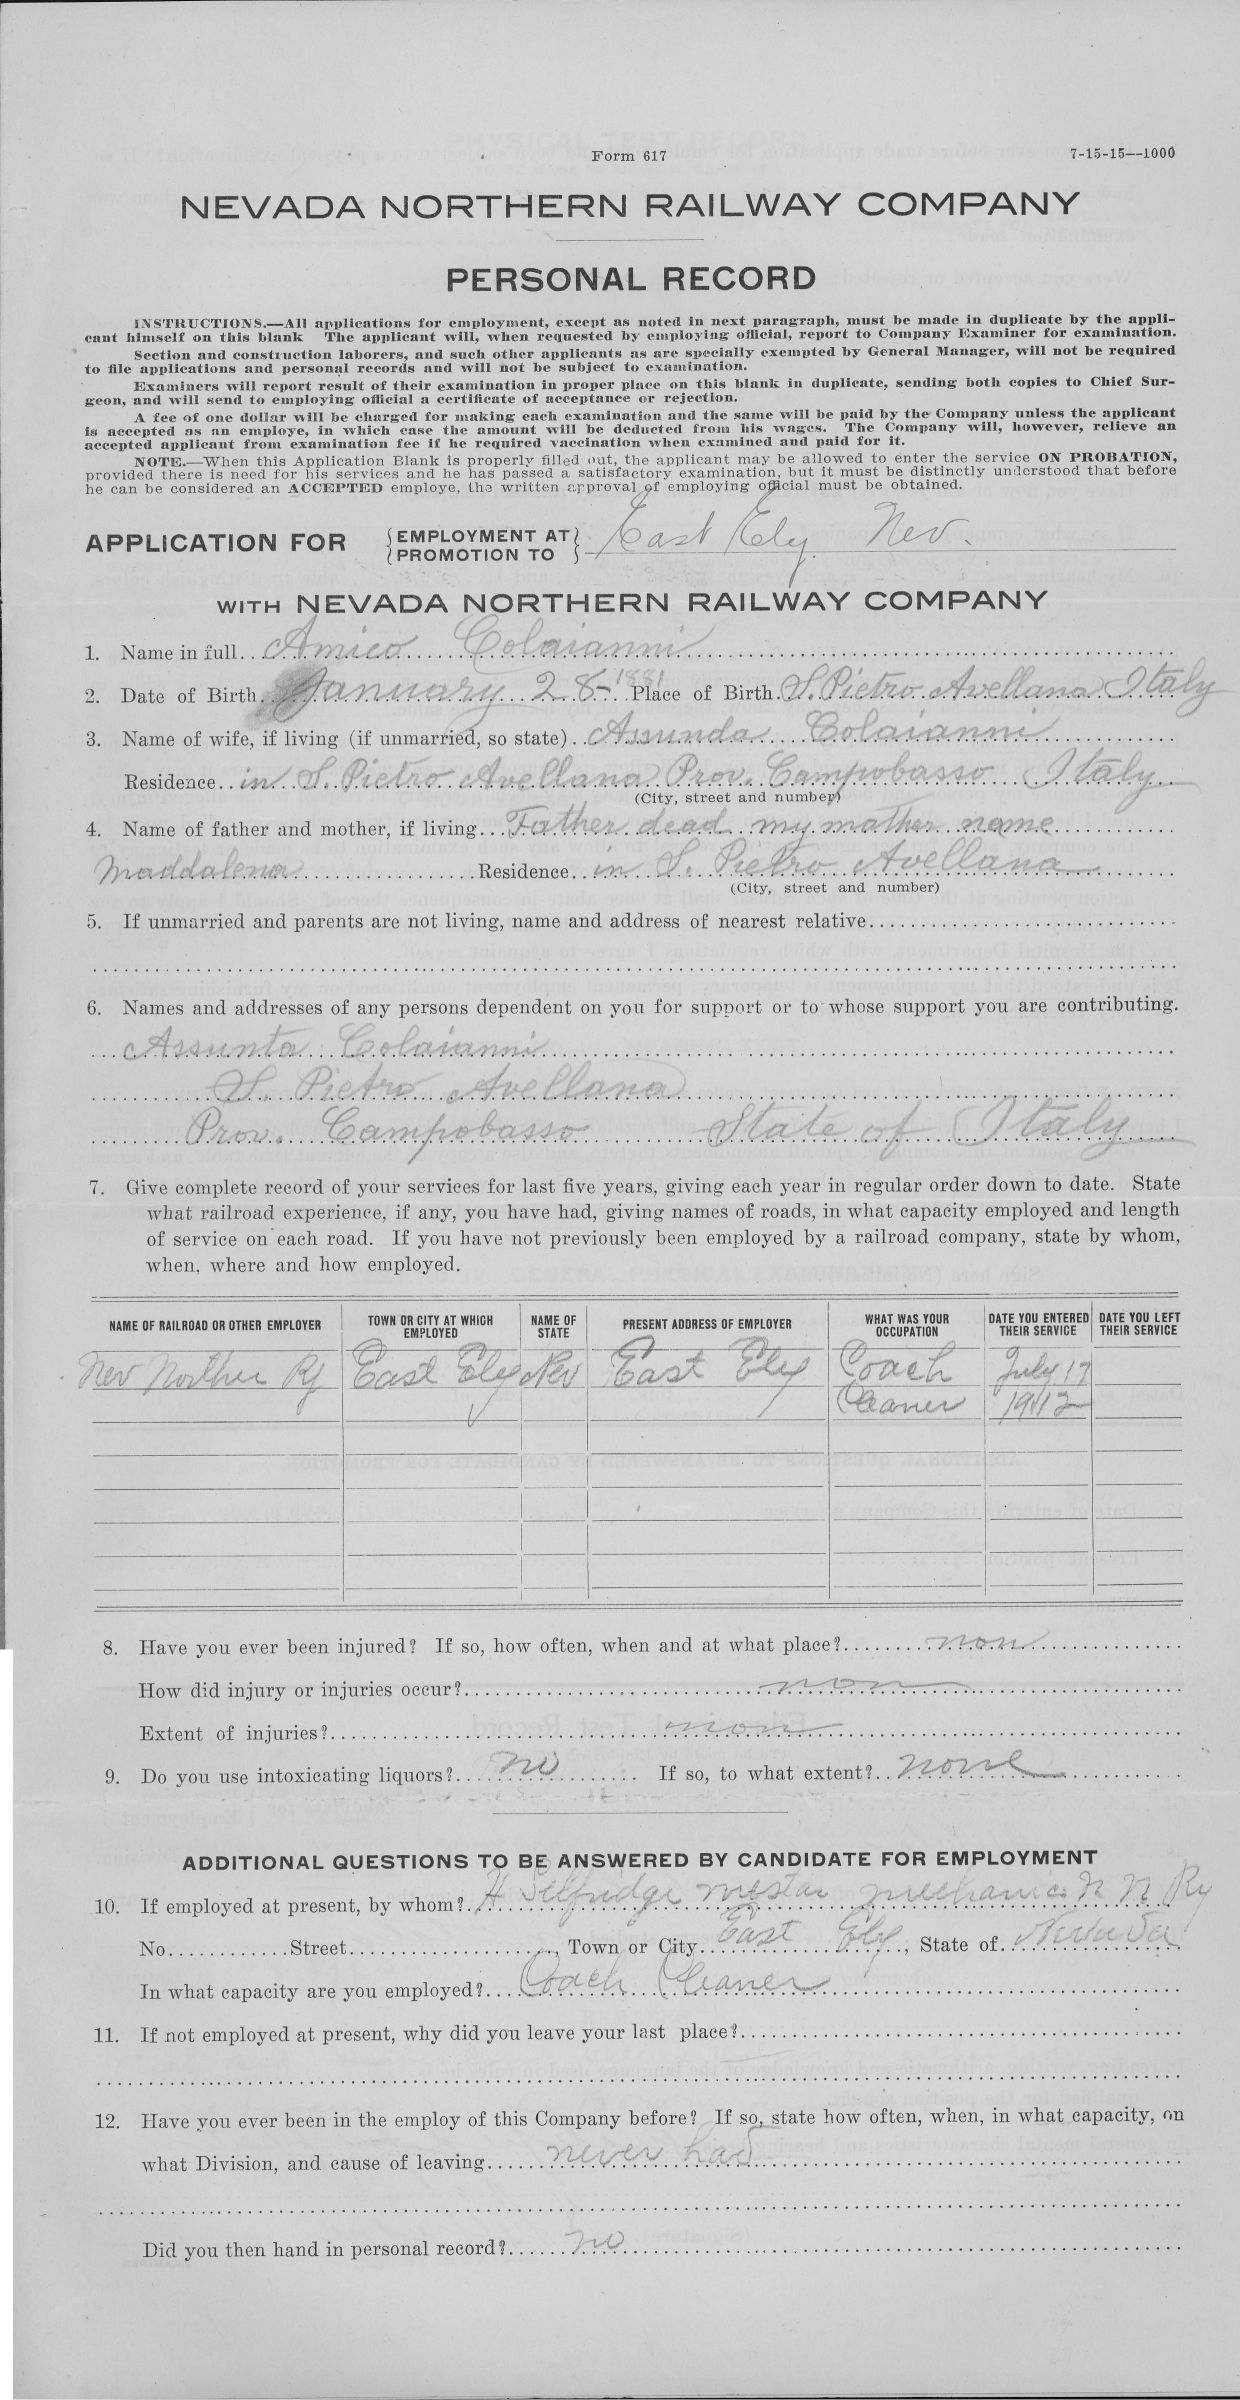 Form 617
7-15-15--1000
NEVADA NORTHERN RAILWAY COMPANY
PERSONAL RECORD
INSTRUCTIONS.—All applications for employment, except as noted in next paragraph, must be made in duplicate by the appli-
cant himself on this blank The applicant will, when requested by employing official, report to Company Examiner for examination.
Section and construction laborers, and such other applicants as are specially exempted by General Manager, will not be required
to file applications and personal records and will not be subject to examination.
Examiners will report result of their examination in proper place on this blank in duplicate, sending both copies to Chief Sur-
geon, and will send to employing official a certificate of acceptance or rejection.
A fee of one dollar will be charged for making each examination and the same will be paid by the Company unless the applicant
is accepted as an employe, in which case the amount will be deducted from his wages. The Company will, however, relieve an
accepted applicant from examination fee if he required vaccination when examined and paid for it.
NOTE.—When this Application Blank is properly filled out, the applicant may be allowed to enter the service ON PROBATION,
provided there is need for his services and he has passed a satisfactory examination, but it must be distinctly understood that before
he can be considered an ACCEPTED employe, the written approval of employing official must be obtained.
APPLICATION FOR {EMPLOYMENT AT} East Ely. Nev.
{PROMOTION TO}
WITH NEVADA NORTHERN RAILWAY COMPANY
1. Name in full.. Amico Colaianni
2. Date of Birth. January 28- 1881 Place of Birth. S. Pietro Avellana Italy
3. Name of wife, if living (if unmarried, so state).. Assunda Colaianni
Residence.. in S. Pietro Avellana Prov. Campobasso Italy
(City, street and number)
4. Name of father and mother, if living... Father dead my mother name
Maddalena Residence.. in S. Pietro Avellana
(City, street and number)
5. If unmarried and parents are not living, name and address of nearest relative
6. Names and addresses of any persons dependent on you for support or to whose support you are contributing.
Assunta Colaianni
S. Pietro Avellana
Prov. Campobasso State of Italy
7. Give complete record of your services for last five years, giving each year in regular order down to date. State
what railroad experience, if any, you have had, giving names of roads, in what capacity employed and length
of service on each road. If you have not previously been employed by a railroad company, state by whom,
when, where and how employed.
NAME OF RAILROAD OR OTHER EMPLOYER TOWN OR CITY AT WHICH EMPLOYED NAME OF STATE PRESENT ADDRESS OF EMPLOYER WHAT WAS YOUR OCCUPATION DATE YOU ENTERED THEIR SERVICE DATE YOU LEFT THEIR SERVICE
Nev Nothern Ry East Ely Nev East Ely Coach July 17
Cleaner 1912
8. Have you ever been injured? If so, how often, when and at what place? non
How did injury or injuries occur? non
Extent of injuries? non
9. Do you use intoxicating liquors? no If so, to what extent?.. none
ADDITIONAL QUESTIONS TO BE ANSWERED BY CANDIDATE FOR EMPLOYMENT
10. If employed at present, by whom?. H Selfridge mestar mechanic N N Ry
No. Street , Town or City East Ely, State of Nevada
In what capacity are you employed? Coach Cleaner
11. If not employed at present, why did you leave your last place?
12. Have you ever been in the employ of this Company before? If so, state how often, when, in what capacity, on
what Division, and cause of leaving never had
Did you then hand in personal record? no